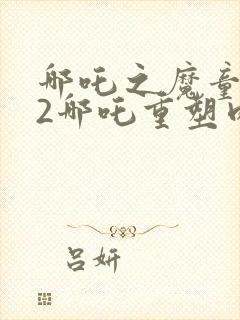 哪吒之魔童
2哪吒重塑
吕妍